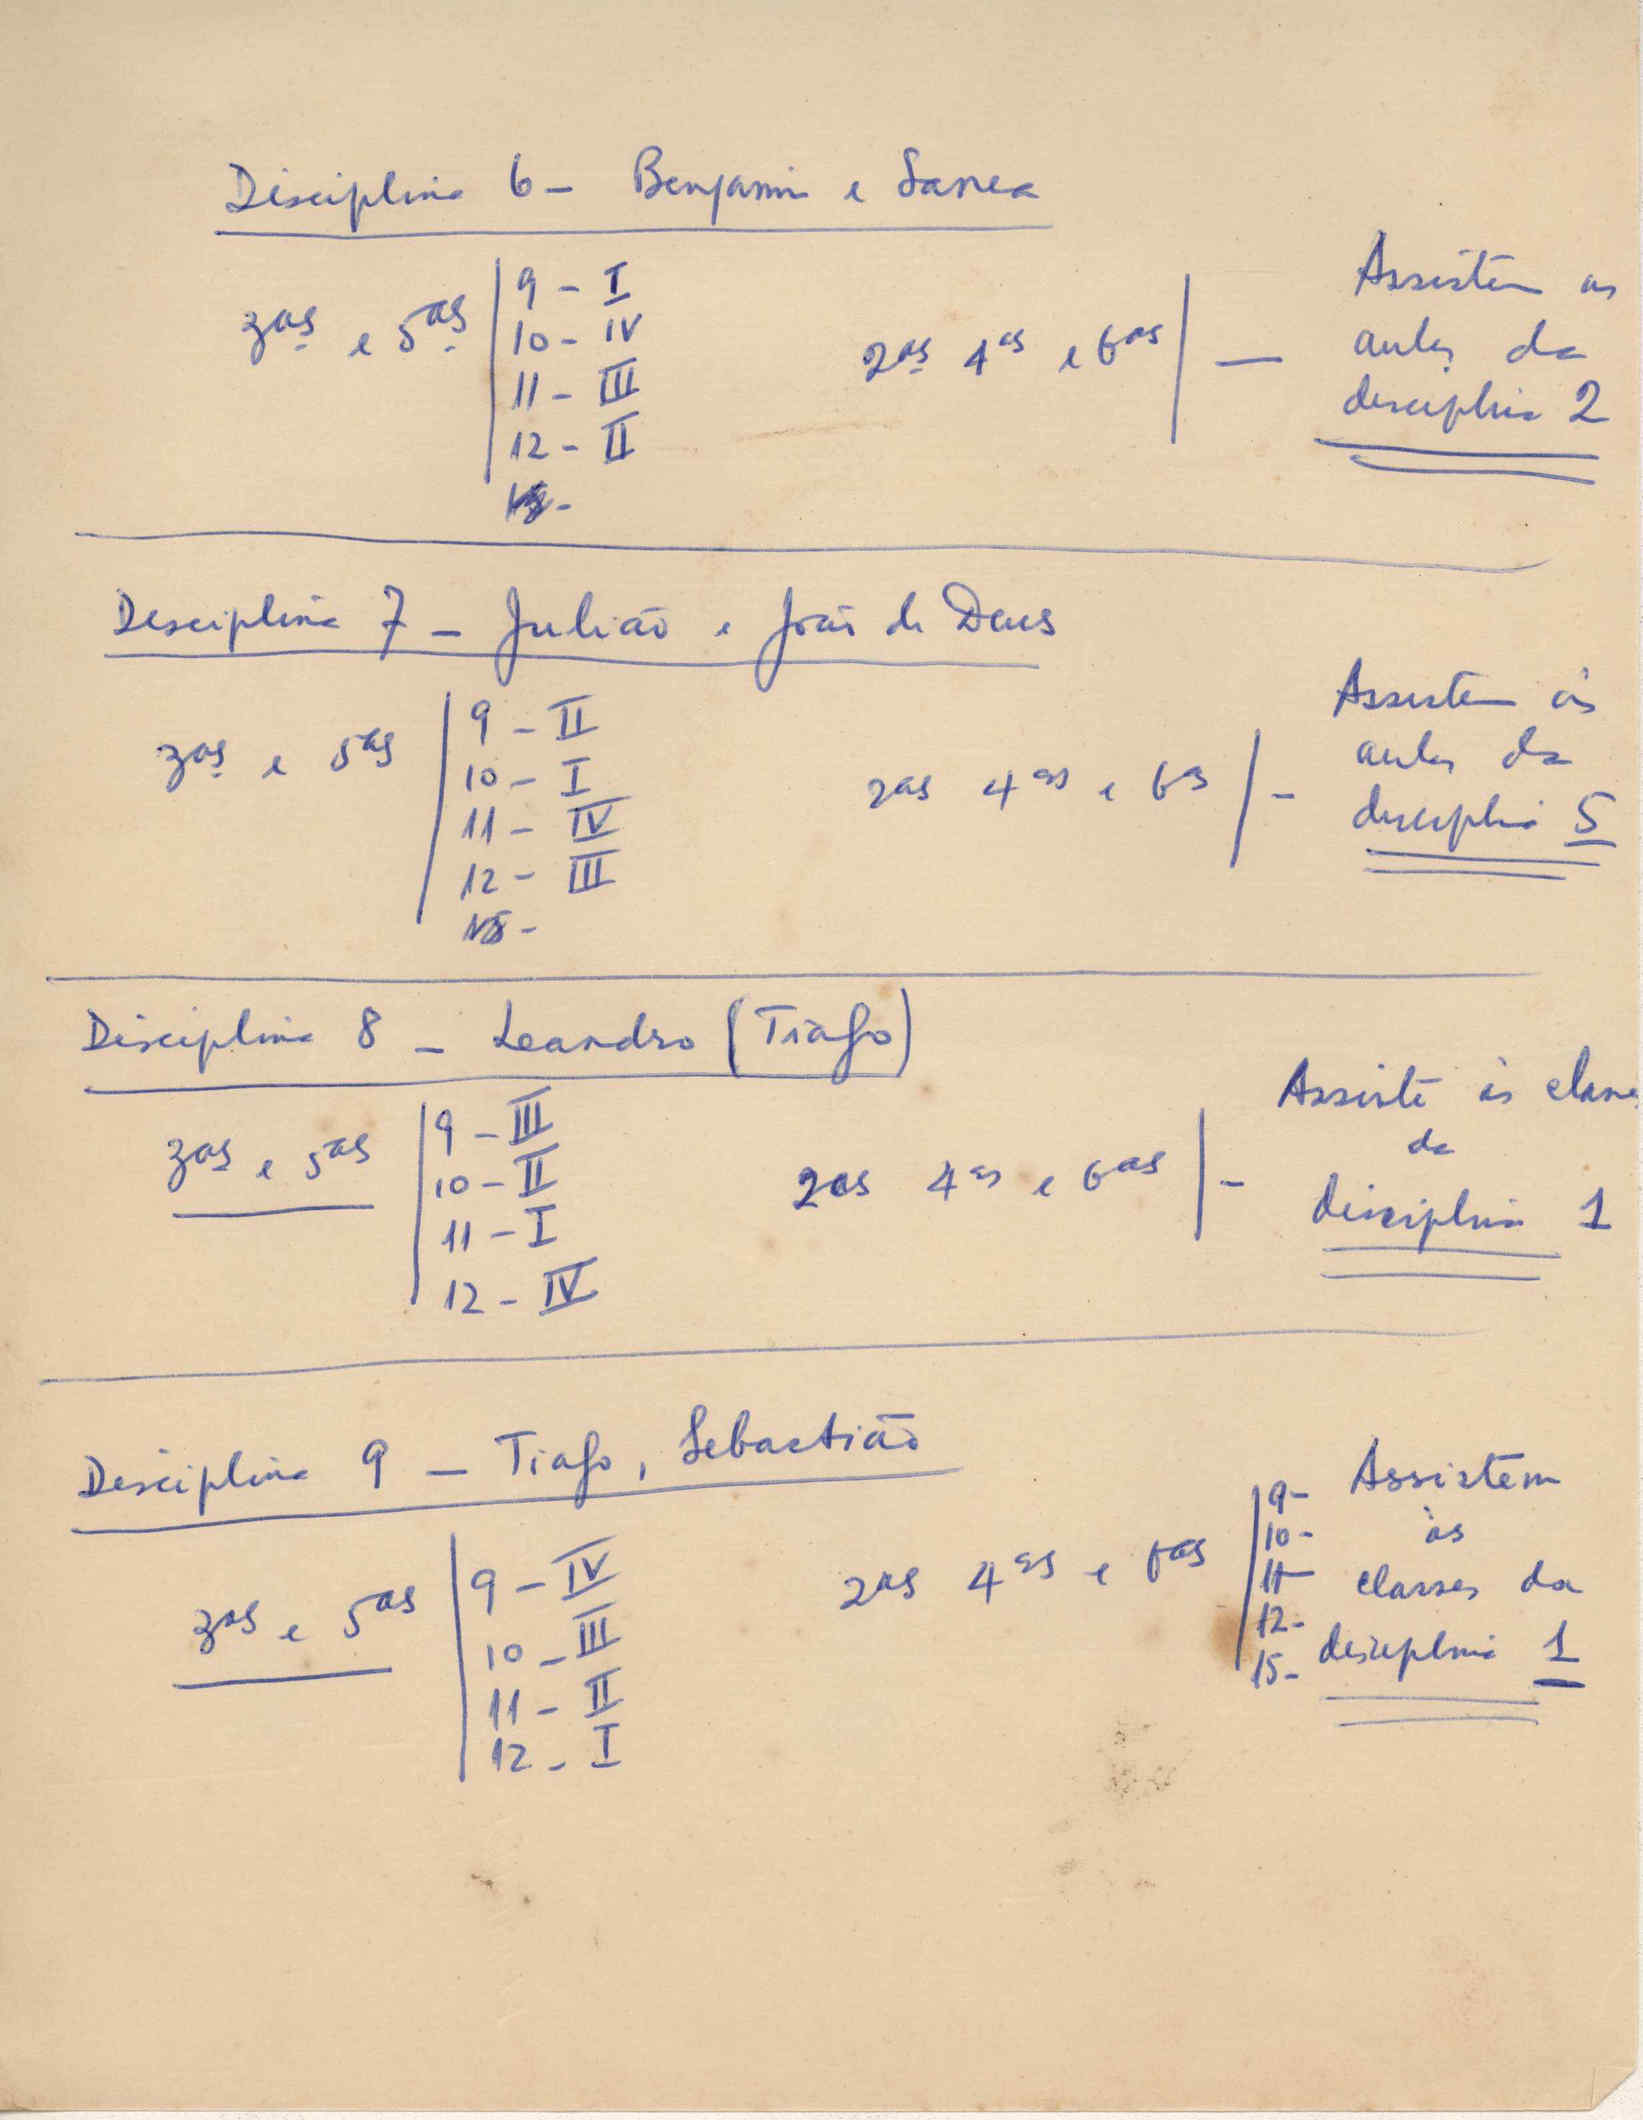 Disciplina 6 - Benjamin e
3as e 5as
9 - I
10 - IV
11 - III
12 - II
2as 4as e 6as -
Assistem as
aulas da
disciplina 2
Disciplina 7 - Julião e João de Deus
3as e 5as
9 - II
10 - I
11 - IV
12 - III
2as 4as e 6as -
Assistem às
aulas da
disciplina 5
Disciplina 8 - Leandro (Tiago)
3as e 5as
9 - III
10 - II
11 - I
12 - IV
2as 4as e 6as -
Assiste às classes
da
disciplina 1
Disciplina 9 - Tiago, Sebastião
3as e 5as
9 - IV
10 - III
11 - II
12 - I
2as 4as e 6as
9- Assistem
10- às
11- classes da
12-
15- disciplina 1